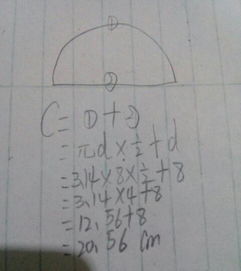 ①
②
C= ①+②
=πd×½+d
=3.14×8×½+8
=3.14×4+8
=12.56+8
=20.56 cm